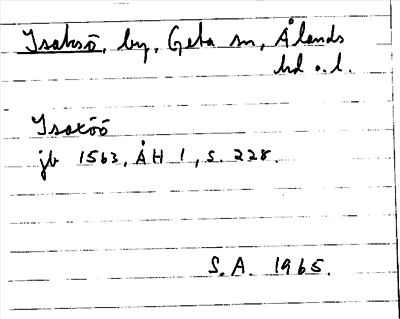 Isaksö, by, Geta sn, Ålands
hd o. l.
Isaxöö
jb 1563, ÅH 1, s. 228.
S. A. 1965.